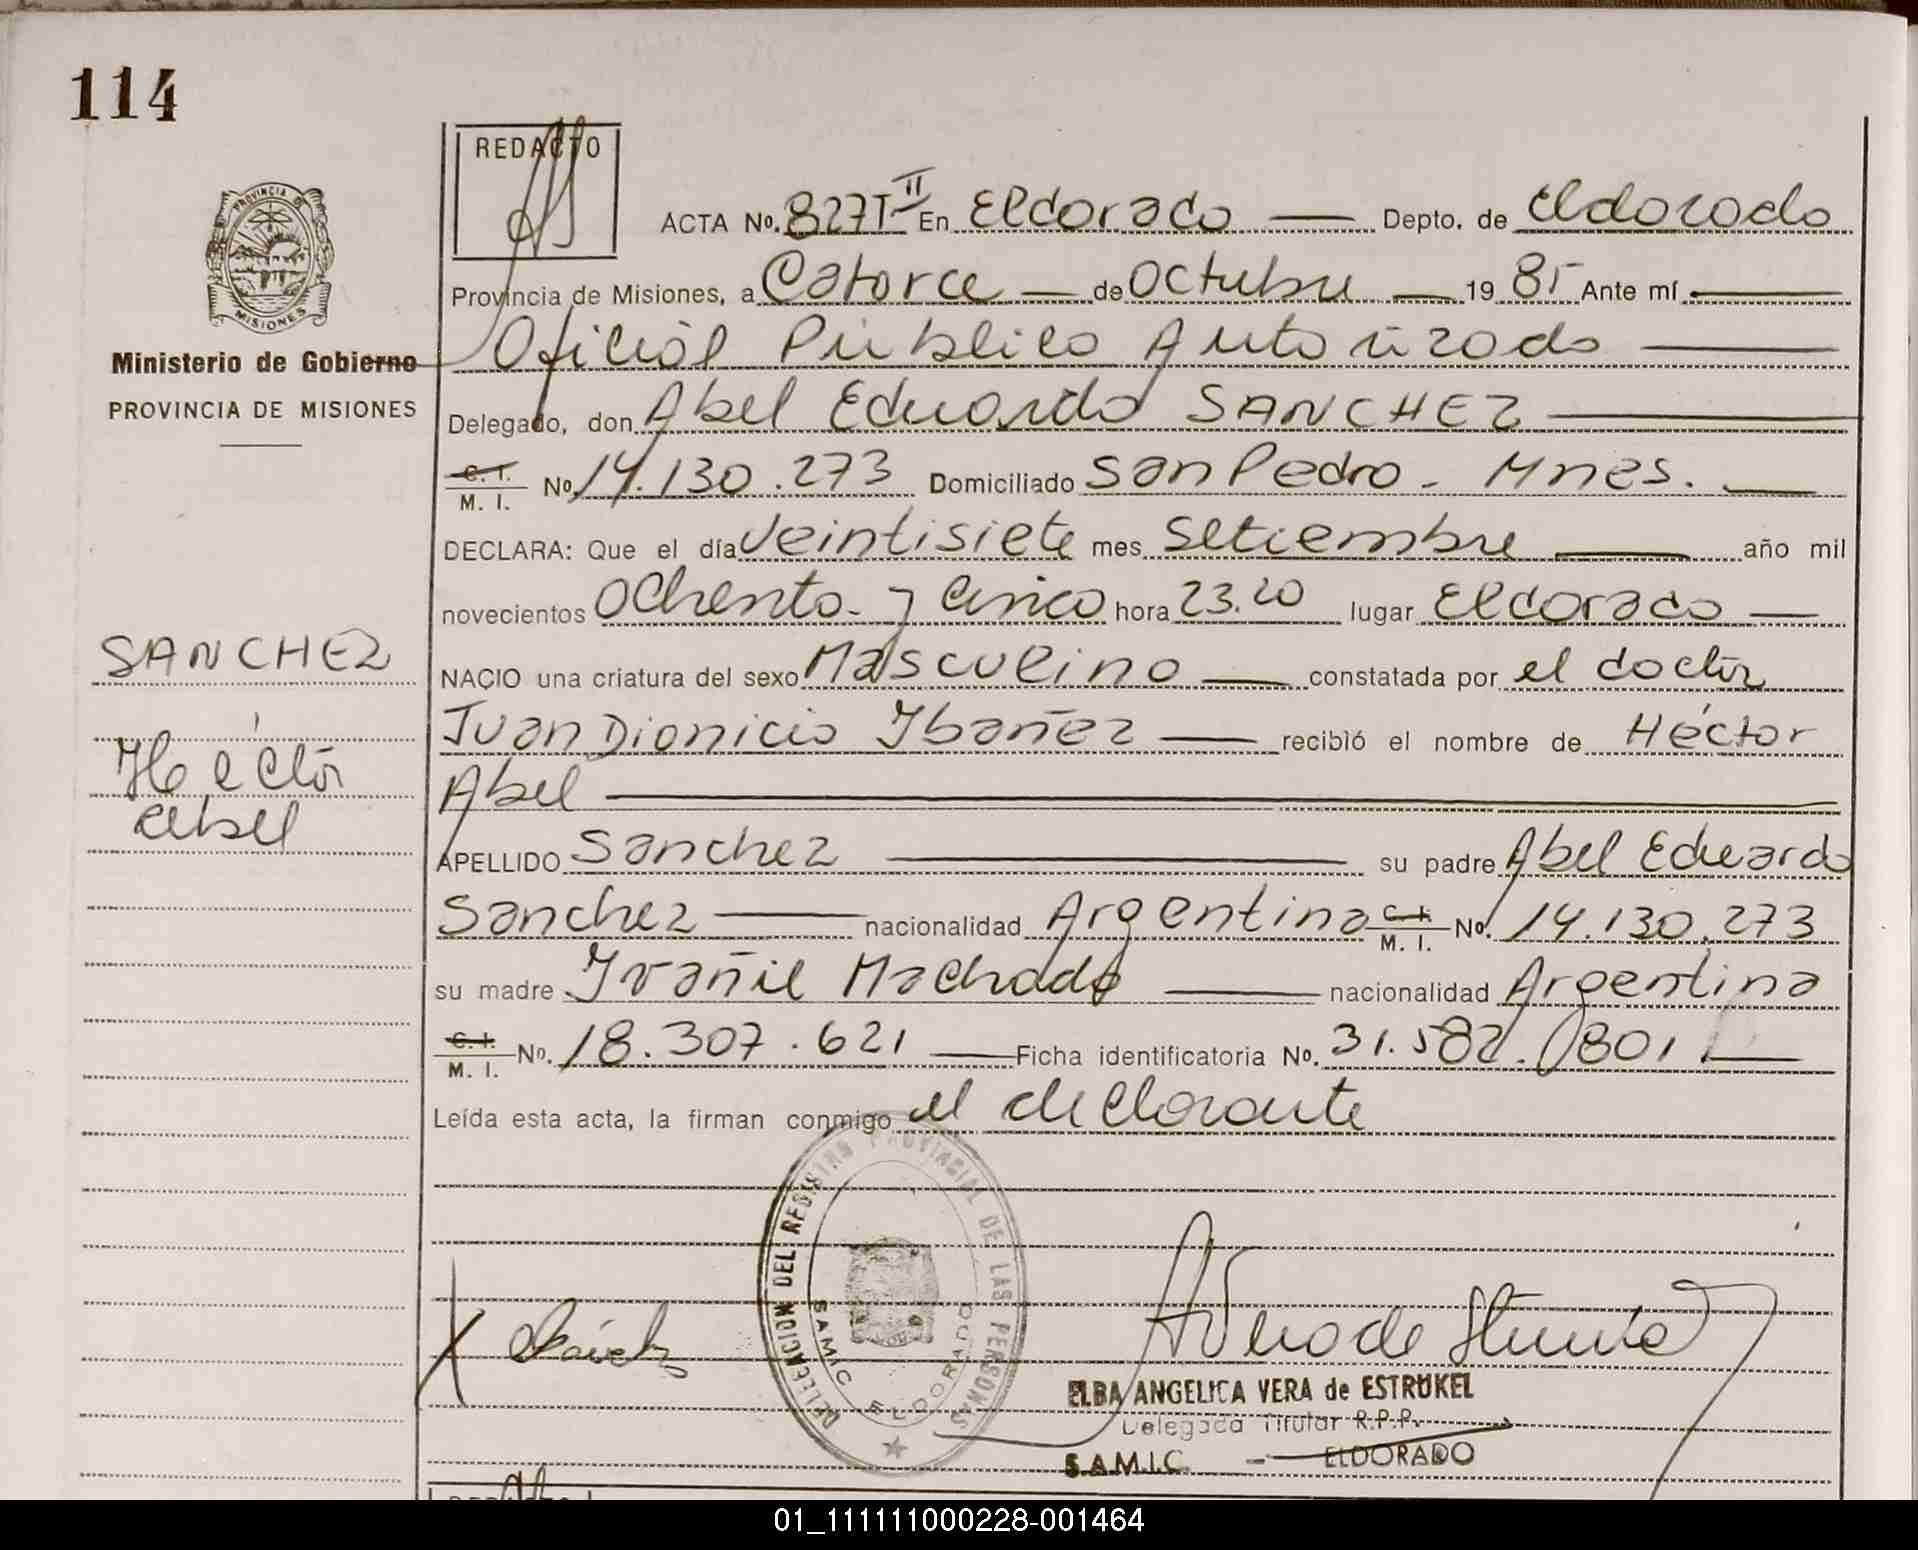 114
REDACTO
ACTA No. 827 T II En Eldorado Depto. de Eldorado
PROVINCIA DE MISIONES
Provincia de Misiones, a Catorce de Octubre 19 85 Ante mí
Oficial Público Autorizado
Ministerio de Gobierno
PROVINCIA DE MISIONES
Delegado, don Abel Eduardo SANCHEZ
C. I. M. I. No. 14.130.273 Domiciliado San Pedro - Mnes.
DECLARA: Que el día veintisiete mes setiembre año mil
novecientos Ochenta y Cinco hora 23.20 lugar Eldorado
SANCHEZ
NACIO una criatura del sexo Masculino constatada por el doctor
Juan Dionicio Ybañez recibió el nombre de Héctor
Héctor
Abel
Abel
APELLIDO Sanchez su padre Abel Eduardo
Sanchez nacionalidad Argentina C. I. M. I. No. 14.130.273
su madre Yvañil Machado nacionalidad Argentina
C. I. M. I. No. 18.307.621 Ficha identificatoria No. 31.582.801
Leída esta acta, la firman conmigo el declarante
DELEGACION DEL REGISTRO PROVINCIAL DE LAS PERSONAS
SAMIC ELDORADO
X
ELBA ANGELICA VERA de ESTRUKEL
Delegada Titular R.P.P.
S.A.M.I.C. - ELDORADO
01_111111000228-001464